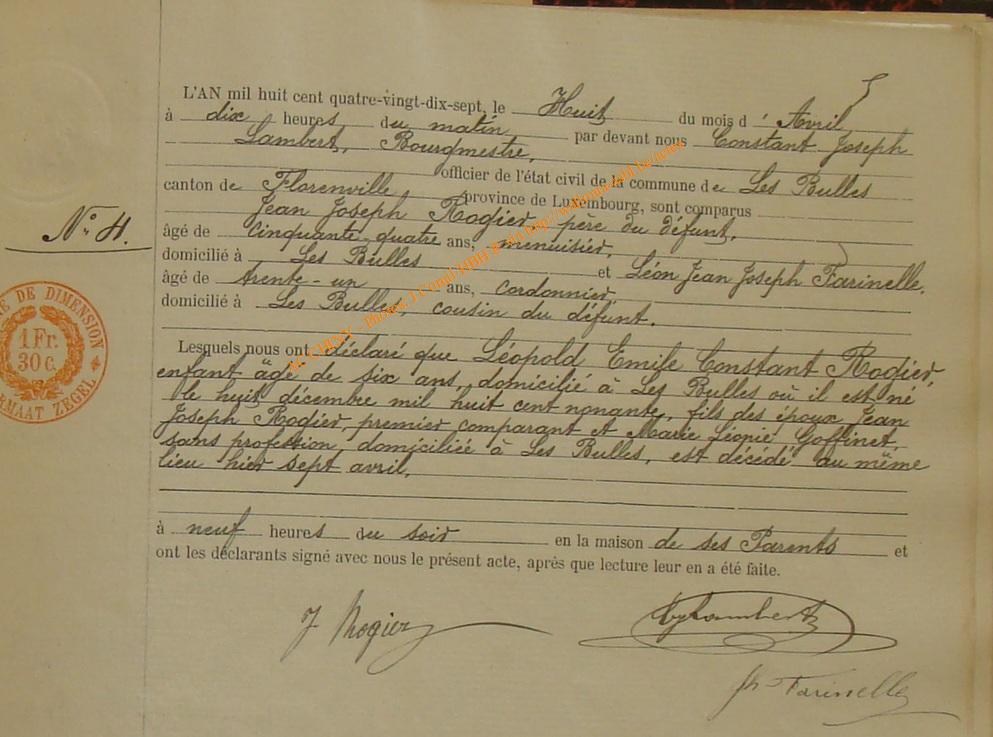 L'AN mil huit cent quatre-vingt-dix-sept, le Huit du mois d' Avril,
à dix heures du matin par devant nous Constant Joseph
Lambert, Bourgmestre,
officier de l'état civil de la commune de Les Bulles
canton de Florenville province de Luxembourg, sont comparus
Jean Joseph Rogier, père du défunt,
N° 4.
âgé de cinquante-quatre ans, menuisier,
domicilié à Les Bulles et Léon Jean Joseph Farinelle,
âgé de trente-un ans, cordonnier,
domicilié à Les Bulles, cousin du défunt.
DE DIMENSION
1 Fr.
30 c.
ZEGEL
Lesquels nous ont déclaré que Léopold Emile Constant Rogier,
enfant âgé de six ans, domicilié à Les Bulles où il est né
le huit décembre mil huit cent nonante, fils des époux Jean
Joseph Rogier, premier comparant et Marie Léonie Goffinet,
sans profession, domiciliée à Les Bulles, est décédé au même
lieu hier sept avril,
à neuf heures du soir en la maison de ses Parents et
ont les déclarants signé avec nous le présent acte, après que lecture leur en a été faite.
J Rogier
Lambert
Farinelle